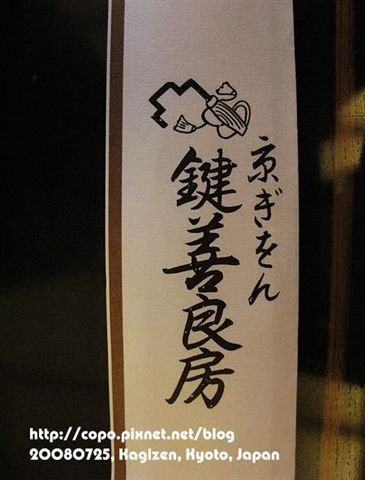 京ぎをん
鍵善良房
http://copo.pixnet.net/blog
20080725, Kagizen, Kyoto, Japan